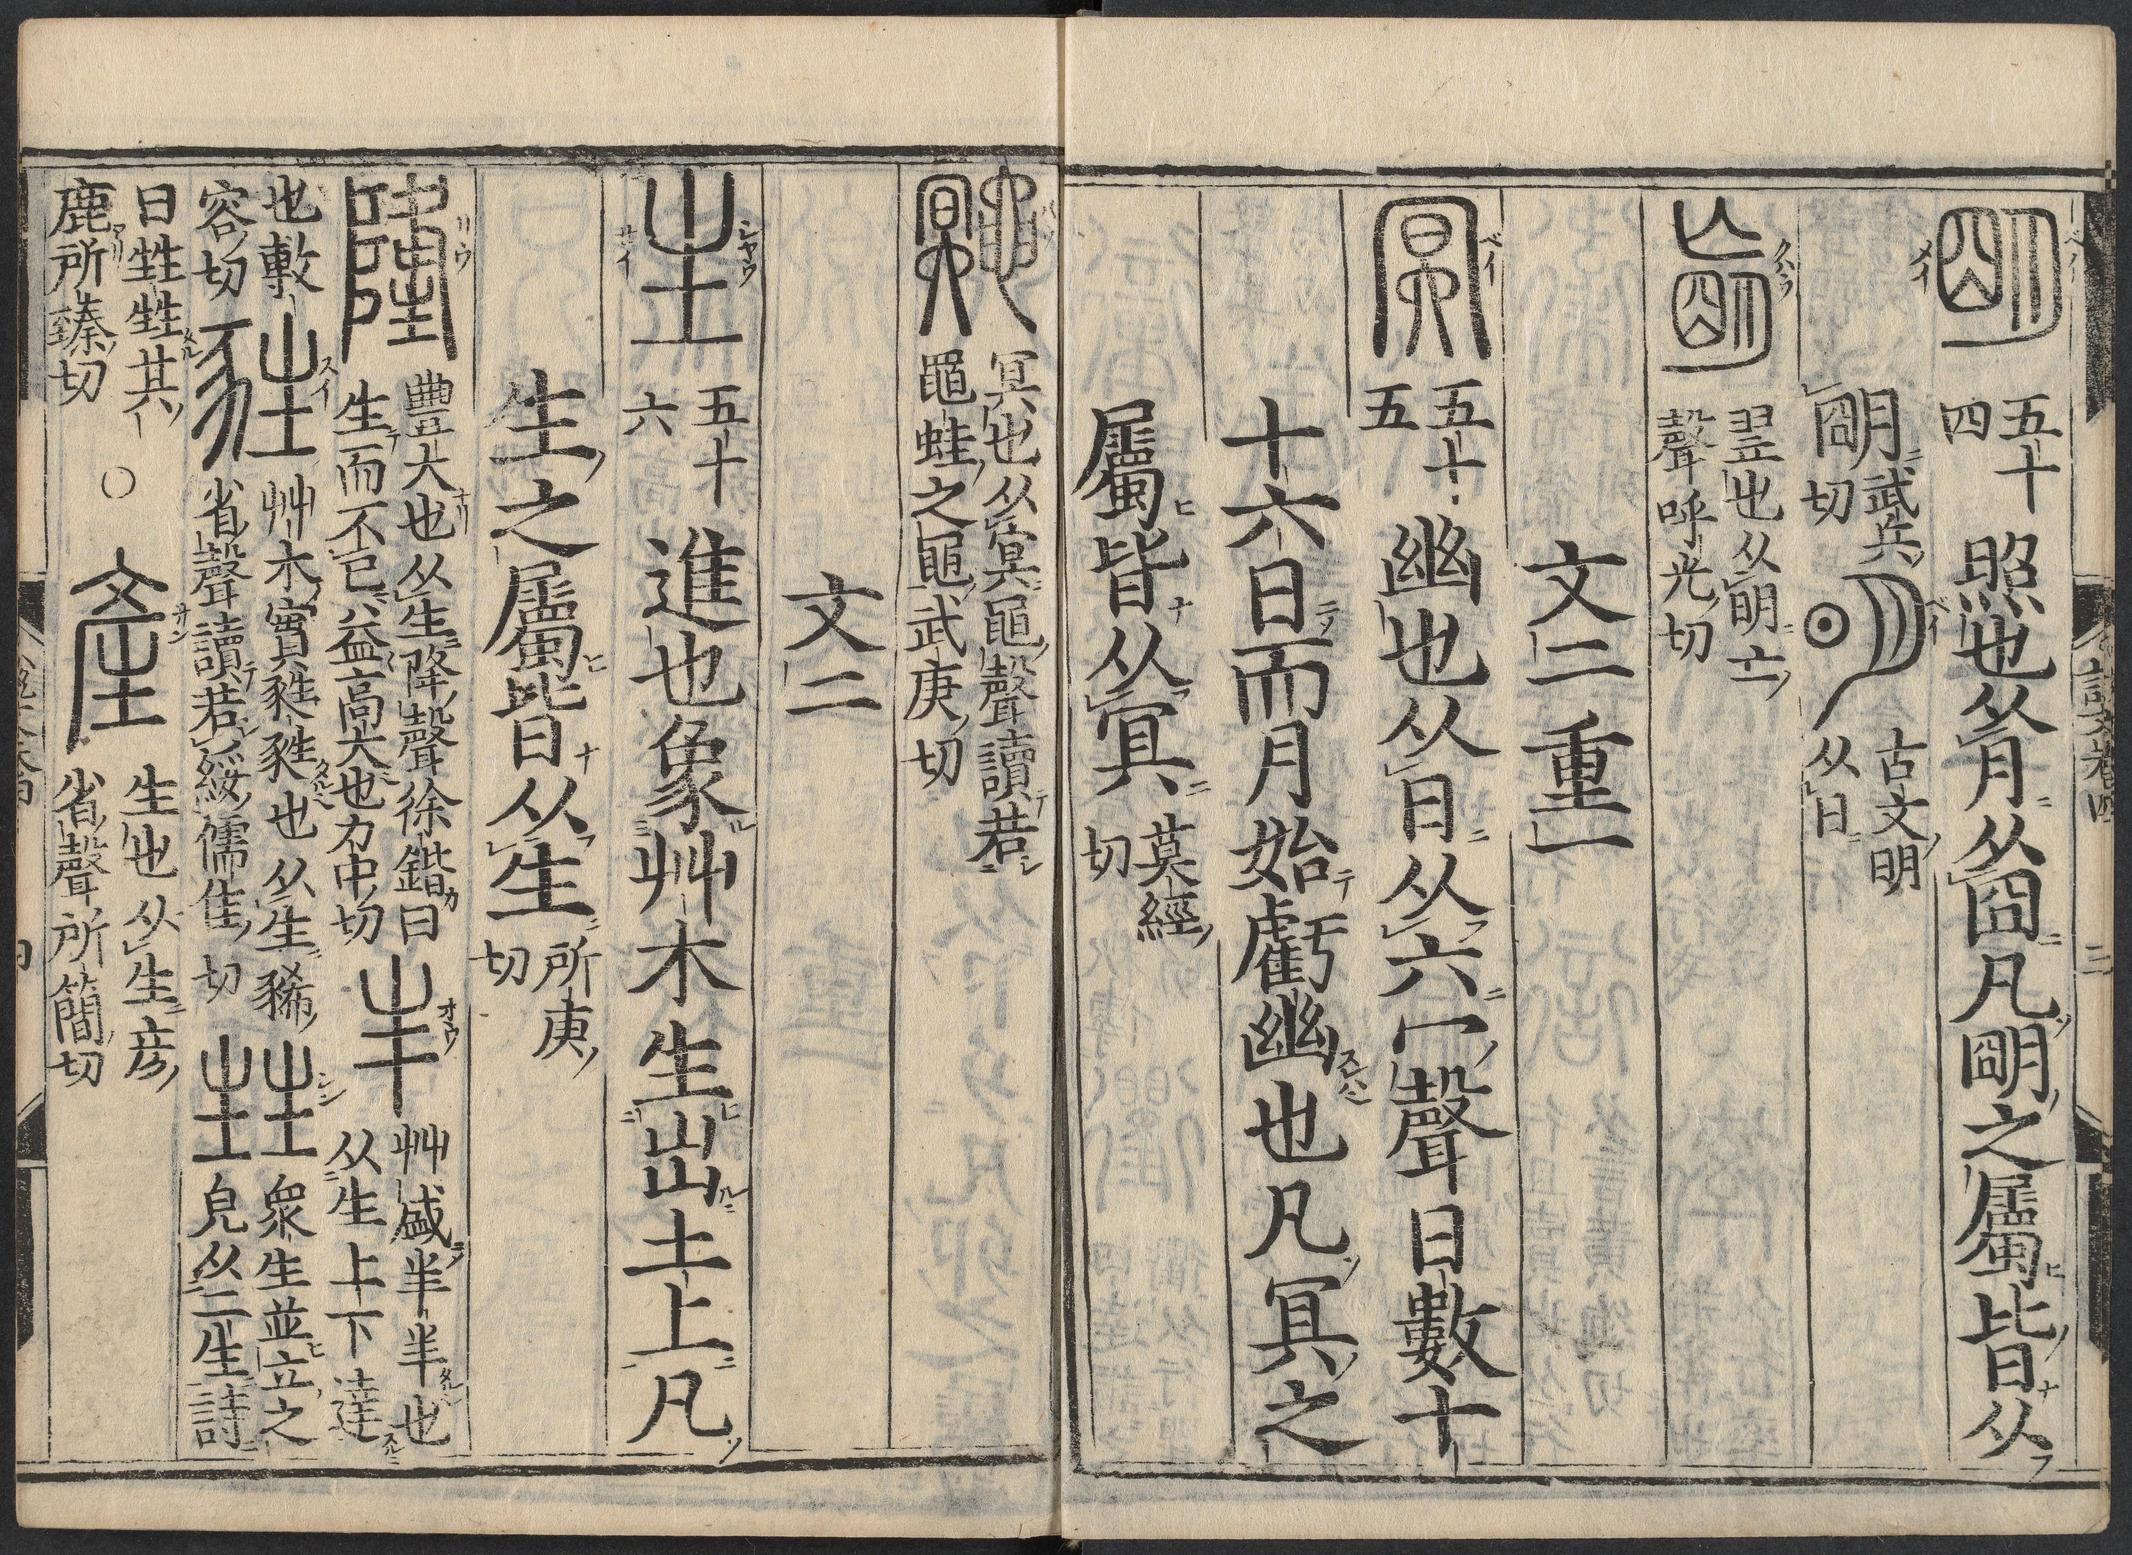 朙 五十四 照也从月从囧凡朙之屬皆从
朙 武兵切 明 古文明从日
𥃵 翌也从明亡聲呼光切
文二重一
冥 五十五 幽也从日从六冖聲日數十
十六日而月始虧幽也凡冥之
屬皆从冥 莫經切
冥也从冥黽聲讀若
黽蛙之黽武庚切
文二
生 五十六 進也象艸木生出土上凡
生之屬皆从生 所庚切
隆 豐大也从生降聲徐鍇曰
生而不已益高大也力中切
丰 艸盛丰丰也
从生上下達
也敷容切
艸木實甤甤也从生豨
省聲讀若綏儒隹切
甡 衆生並立之
皃从二生詩
曰甡甡其
鹿所臻切
○ 產 生也从生彦
省聲所簡切